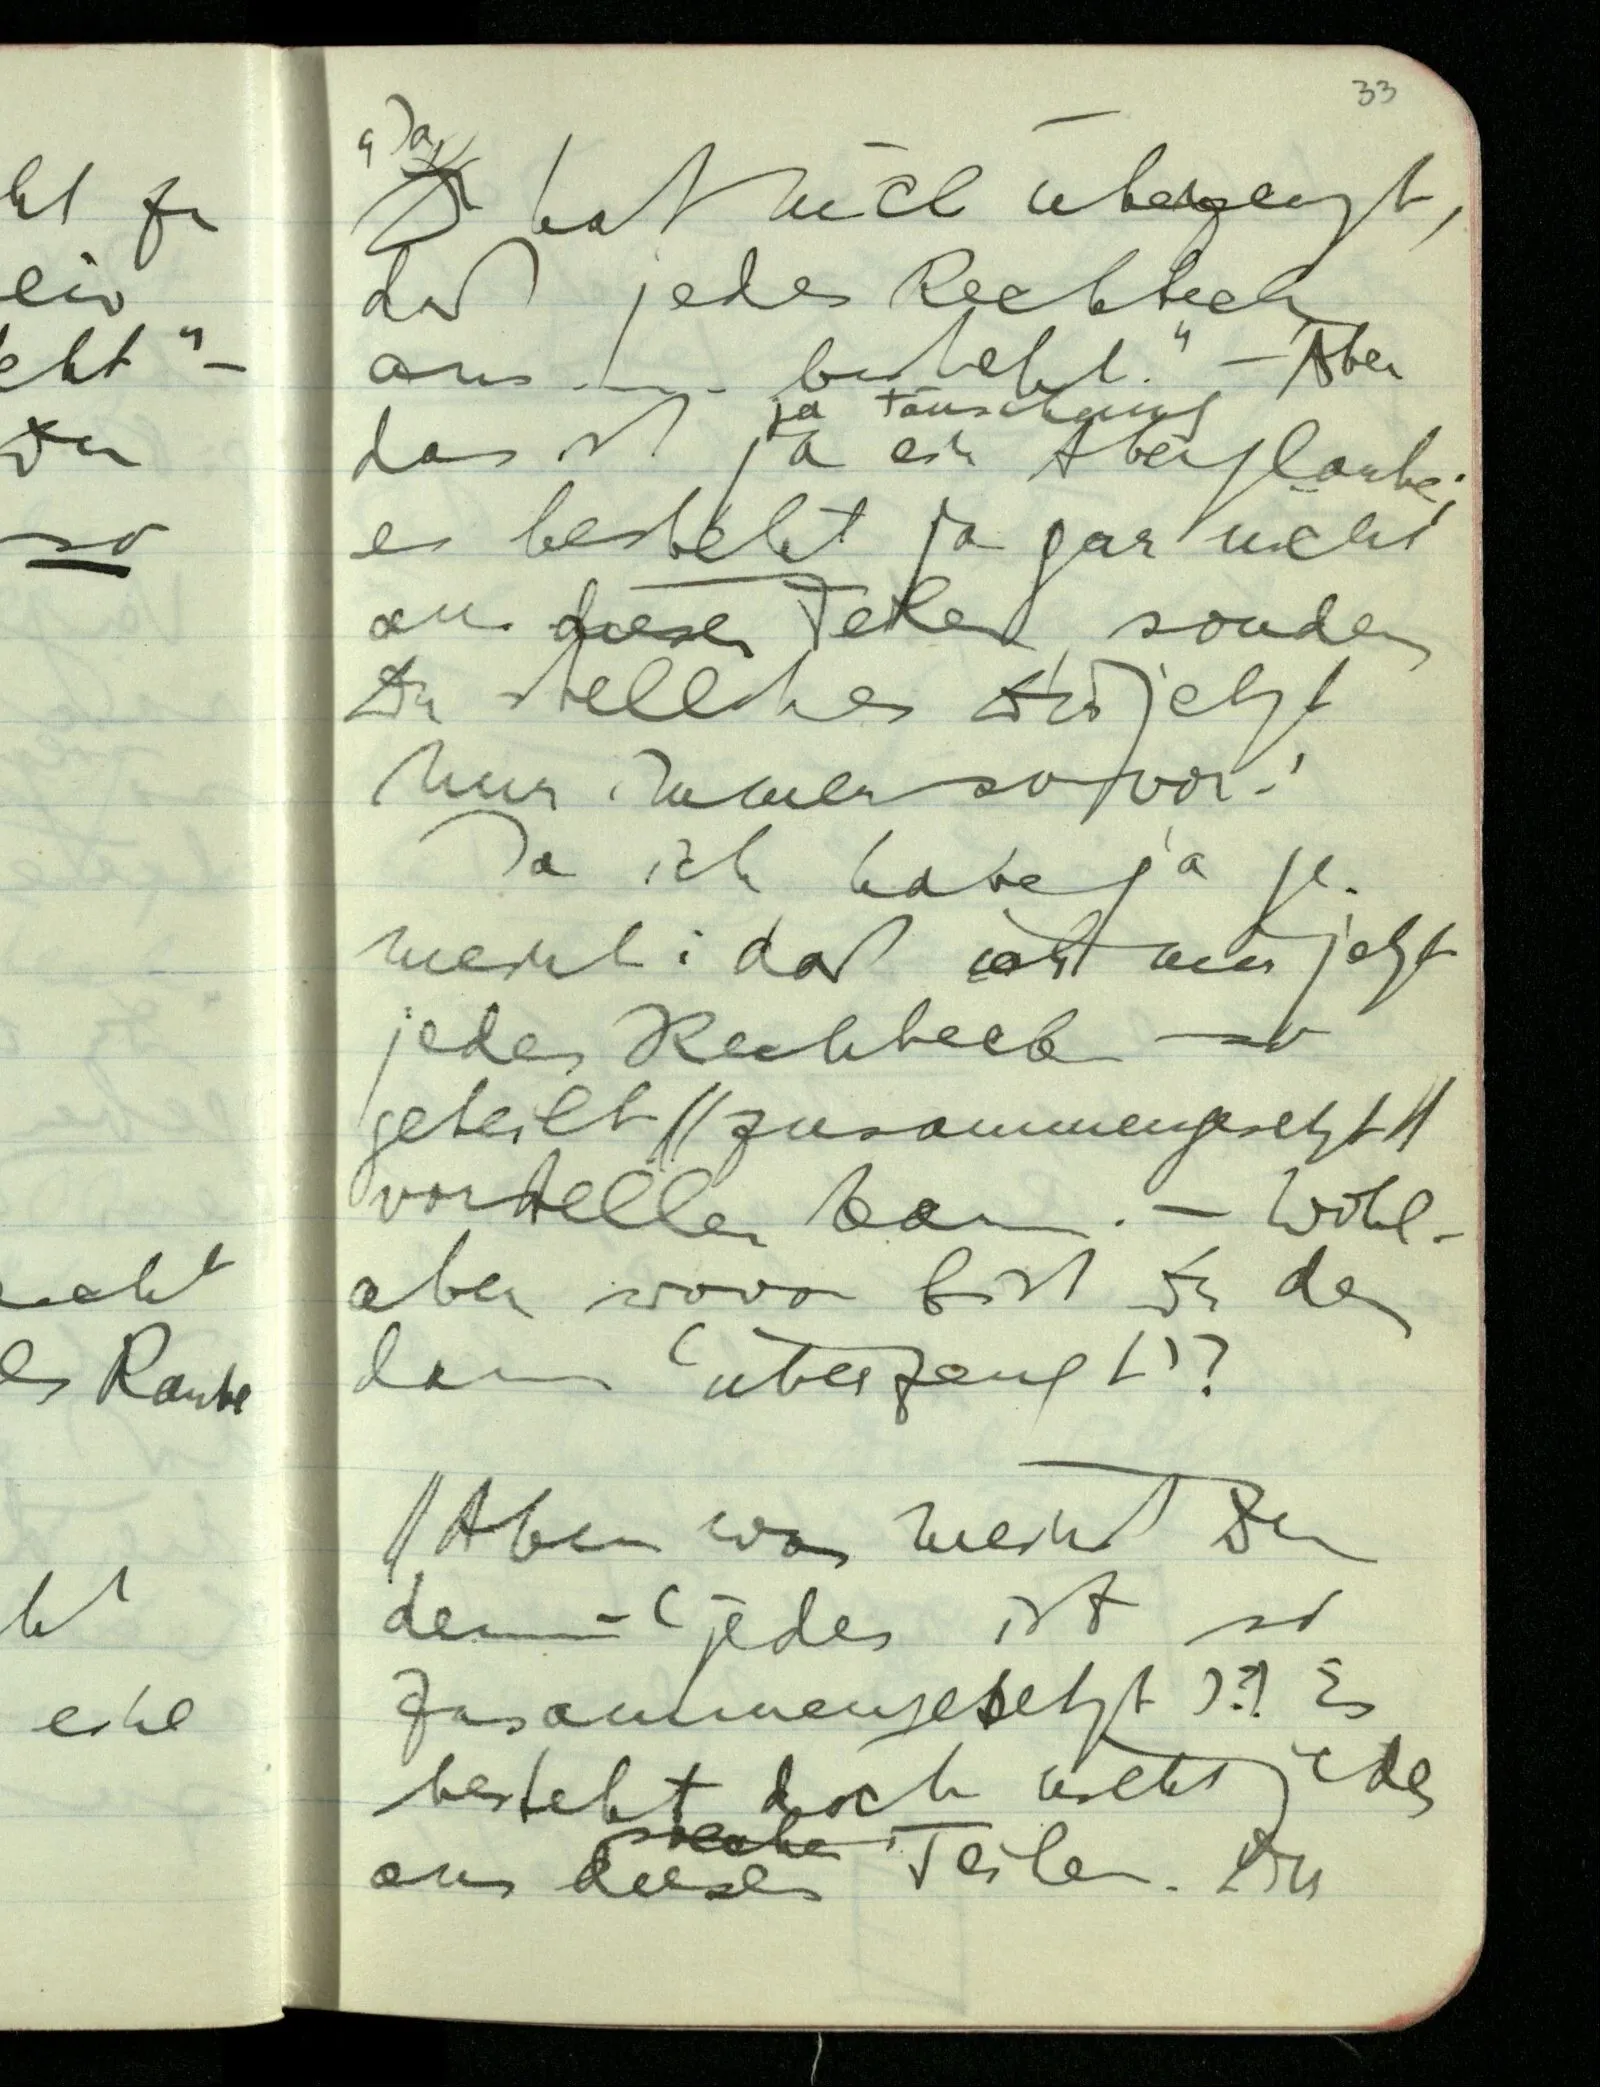 33
„Da
hat mich überzeugt,
daß jedes Rechteck
aus ..... besteht.“ – Aber
ja Täuschung
das ist ja ein Aberglaube;
es besteht ja gar nicht
aus diesen Teilen, sondern
Du stellst es Dir jetzt
nur immer so vor!
Ja ich habe ja ge-
meint: daß ich mir jetzt
jedes Rechteck so
geteilt // zusammengesetzt //
vorstellen kann. – Wohl –
aber wovon bist Du denn
dann ‘überzeugt’?
// Aber was meinst Du
denn – ‘jedes ist so
zusammengesetzt’?! Es
besteht doch nicht jedes
solchen
aus diesen Teilen. Du
ht zu
ein
eht“ –
Du
so
nicht
es Raube
ht
eine